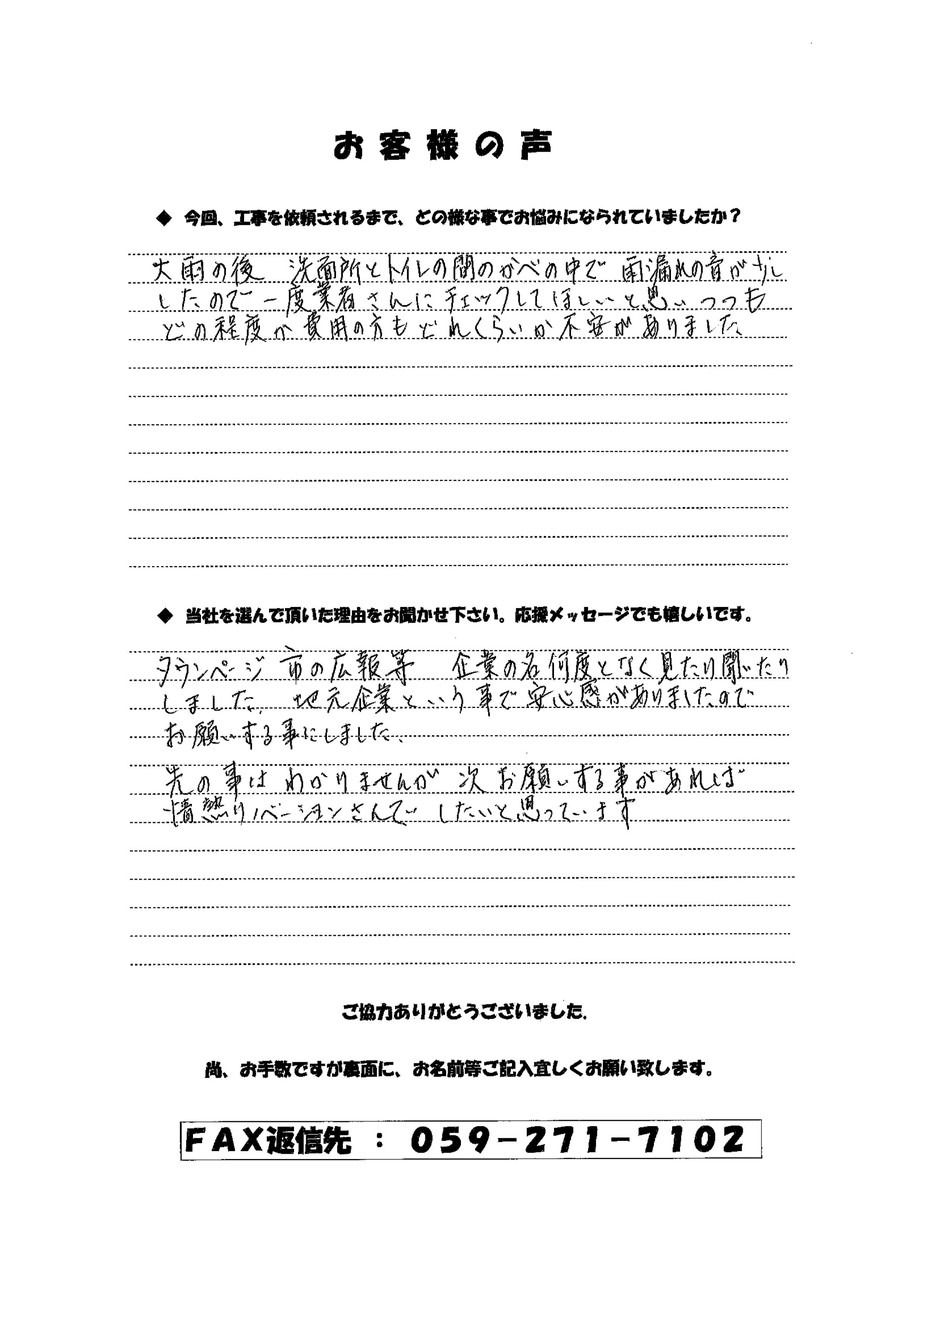 お客様の声
◆ 今回、工事を依頼されるまで、どの様な事でお悩みになられていましたか？
大雨の後 洗面所とトイレの間のかべの中で 雨漏れの音が少し
したので一度業者さんにチェックしてほしいと思いつつも
どの程度か費用の方もどれくらいか不安がありました
◆ 当社を選んで頂いた理由をお聞かせ下さい。応援メッセージでも嬉しいです。
タウンページ 市の広報等 企業の名何度となく見たり聞いたり
しました。地元企業という事で安心感がありましたので
お願いする事にしました.
先の事はわかりませんが 次お願いする事があれば
情熱リノベーションさんで したいと思っています
ご協力ありがとうございました.
尚、お手数ですが裏面に、お名前等ご記入宜しくお願い致します。
FAX返信先 ： 059-271-7102